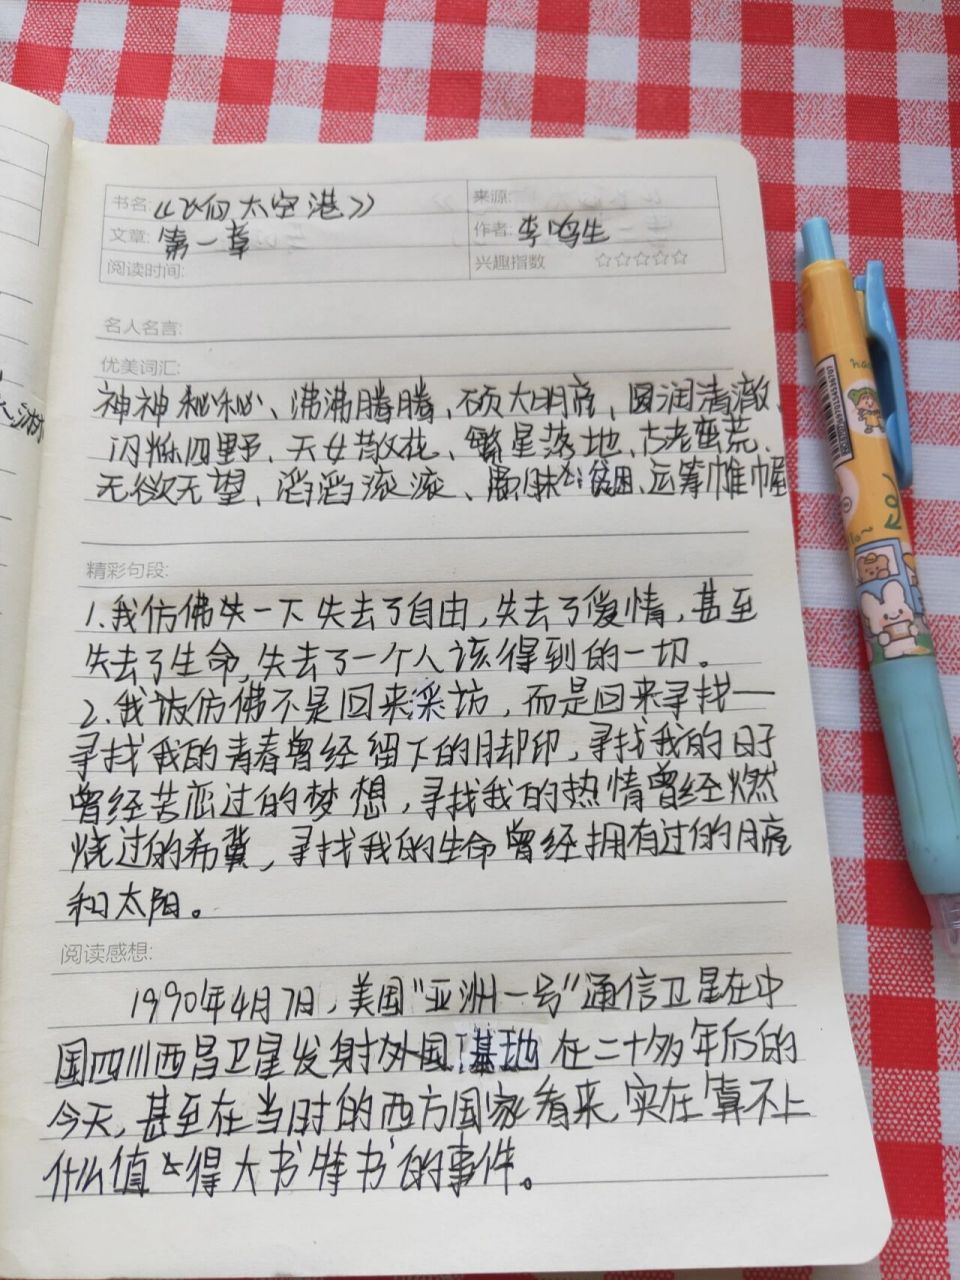 书名: 《飞向太空港》 来源:
文章: 第一章 作者: 李鸣生
阅读时间: 兴趣指数 ☆☆☆☆☆
名人名言:
优美词汇:
神神秘秘、沸沸腾腾、硕大明亮、圆润清澈、
闪烁四野、天女散花、繁星落地、古老蛮荒、
无欲无望、滔滔滚滚、愚昧贫困、运筹帷幄
精彩句段:
1.我仿佛一下失去了自由,失去了爱情,甚至
失去了生命,失去了一个人该得到的一切。
2.我仿佛不是回来采访,而是回来寻找——
寻找我的青春曾经留下的脚印,寻找我的日子
曾经苦恋过的梦想,寻找我的热情曾经燃
烧过的希冀,寻找我的生命曾经拥有过的月亮
和太阳。
阅读感想:
1990年4月7日,美国“亚洲一号”通信卫星在中
国四川西昌卫星发射基地在二十多年后的
今天,甚至在当时的西方国家看来,实在算不上
什么值得大书特书的事件。